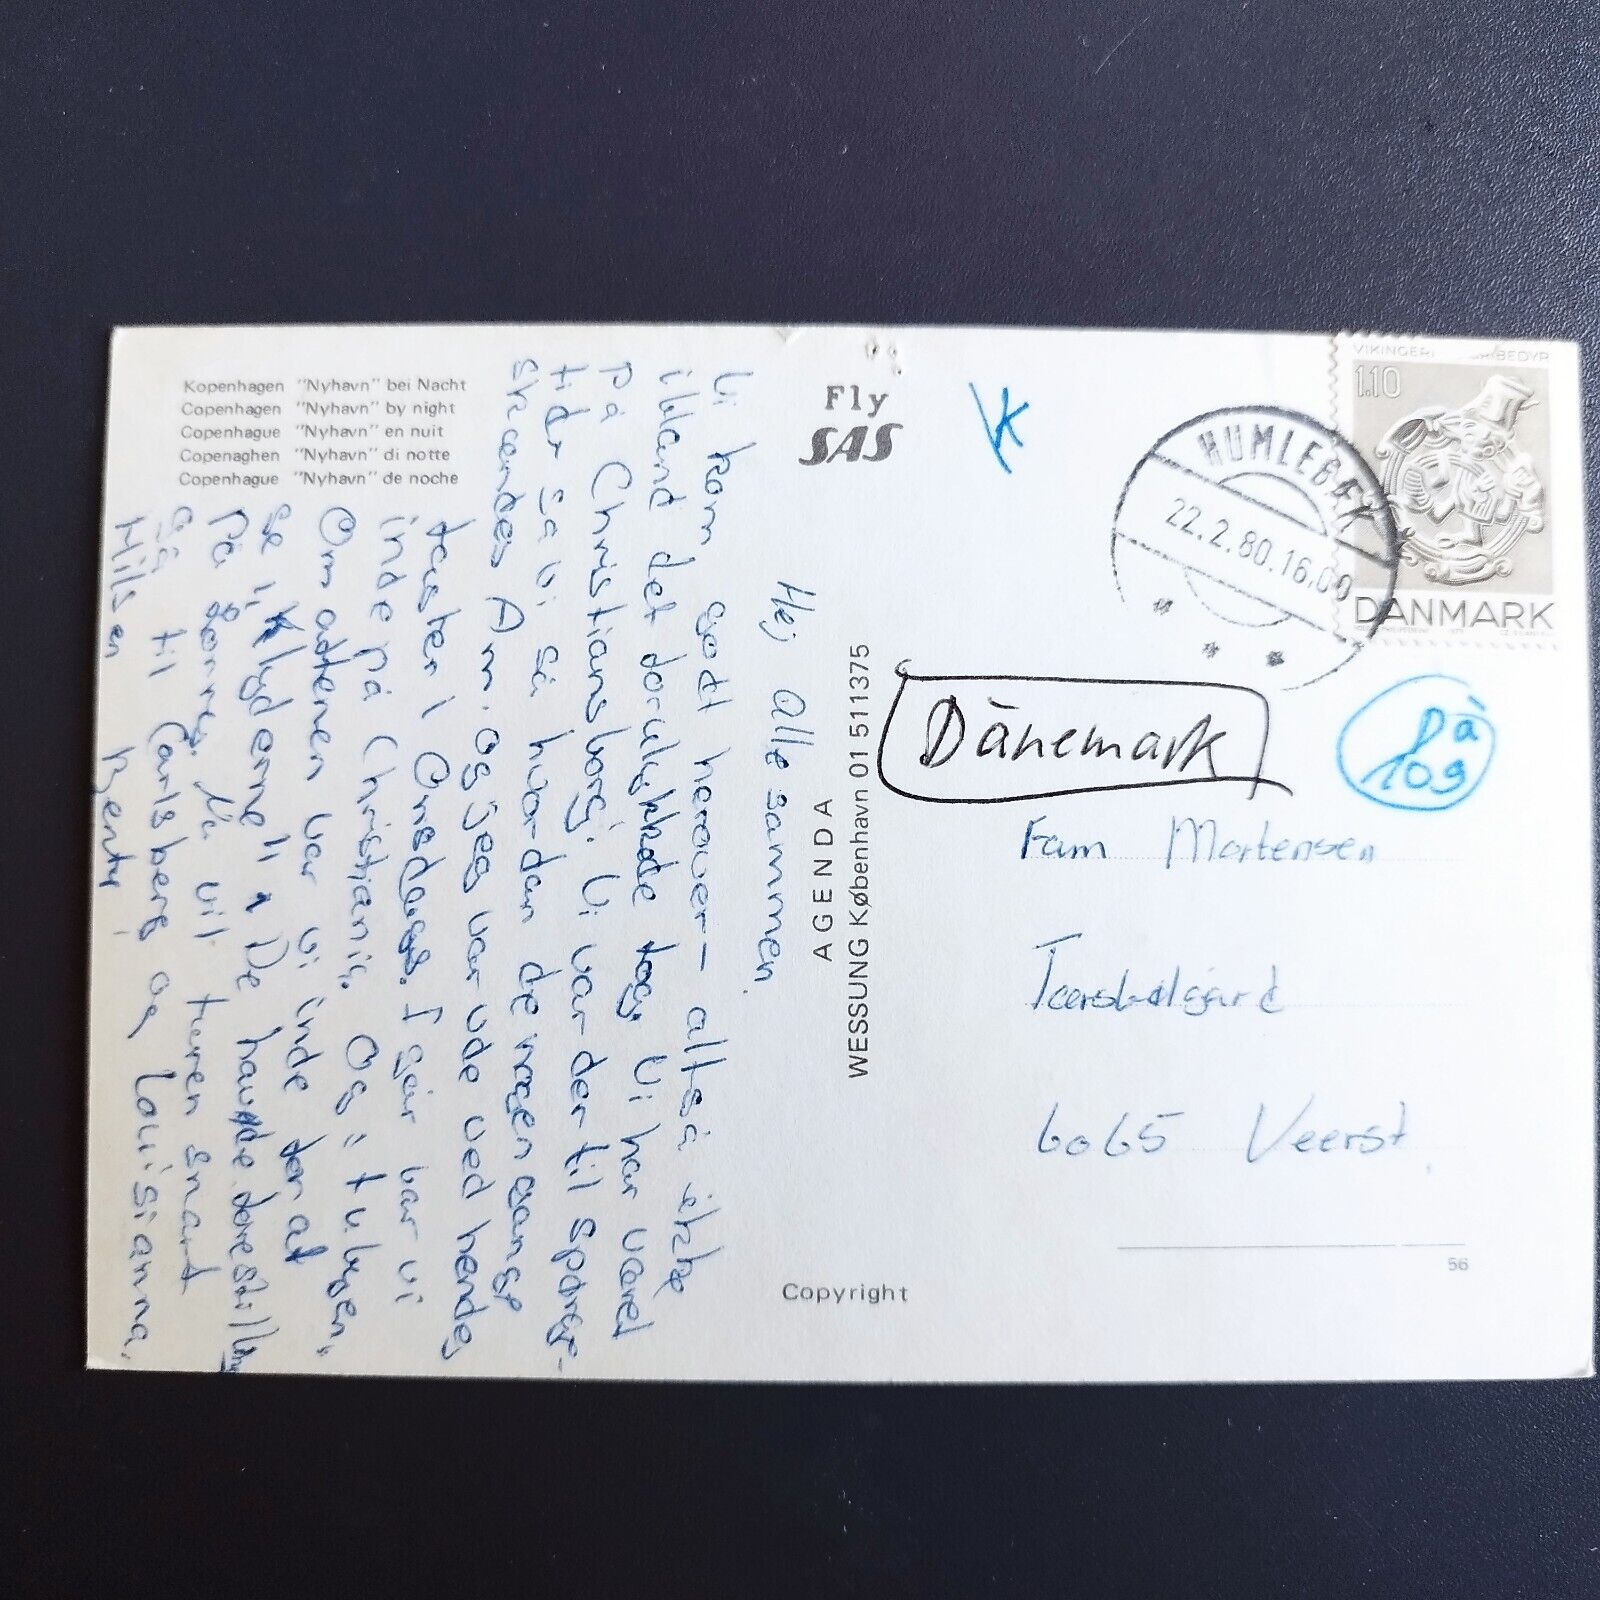 Kopenhagen "Nyhavn" bei Nacht
Copenhagen "Nyhavn" by night
Copenhague "Nyhavn" en nuit
Copenaghen "Nyhavn" di notte
Copenhague "Nyhavn" de noche
Hej alle sammen.
Vi kom godt herover - altså ikke
iblandt det forulykkede tog. Vi har været
på Christiansborg. Vi var der til spørge-
tider så vi så hvordan de nogen gange
skændes Am. og jeg var ude ved hendes
faster i Onsdags. I går var vi
inde på Christiania. Og i tuben,
Om aftenen var vi inde for at
se "Klyderne". De havde forestilling
på
Nu vil turen snart
gå til Carlsberg og Louisianna.
Hilsen Bente
Fly
SAS
AGENDA
WESSUNG København 01 511375
Copyright
K
HUMLEBÆK
22.2.80.16.00
VIKINGER BEDYR
1.10
DANMARK
Dänemark
Dä
109
Fam Mortensen
6065 Veerst.
56